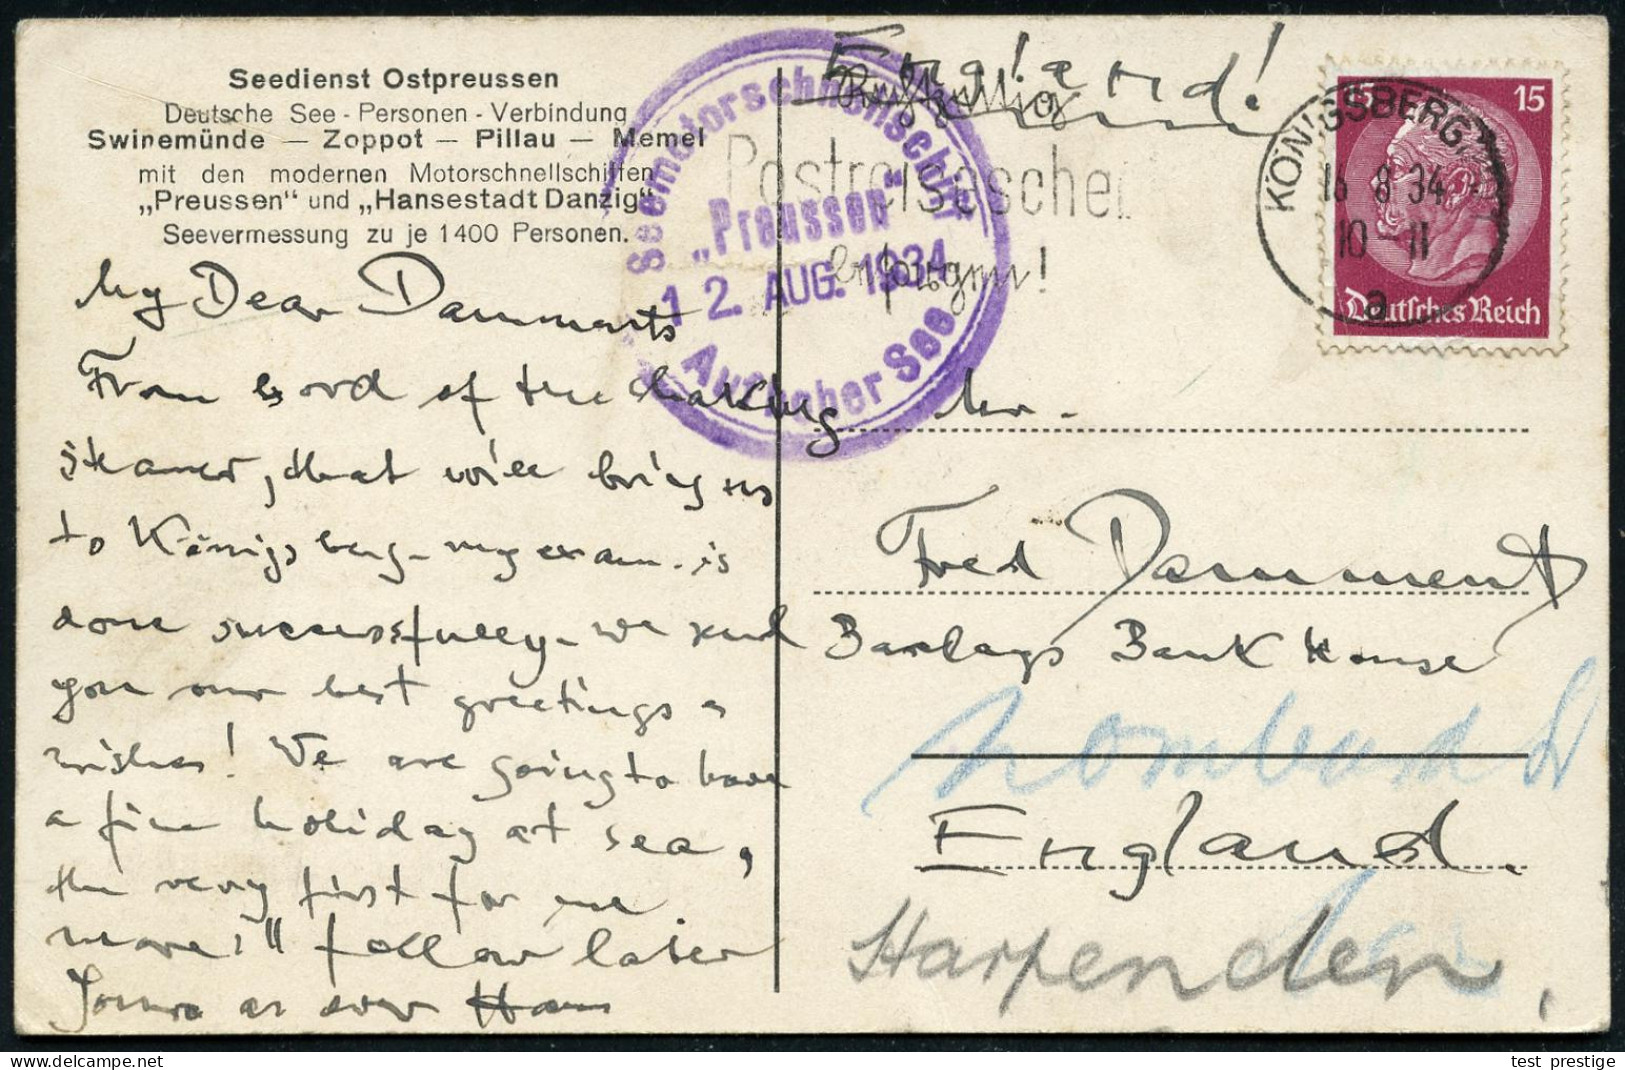 Seedienst Ostpreussen
Deutsche See - Personen - Verbindung
Swinemünde — Zoppot — Pillau — Memel
mit den modernen Motorschnellschiffen
„Preussen" und „Hansestadt Danzig"
Seevermessung zu je 1400 Personen.
My Dear Dammants
From bord of the charking
steamer, that will bring us
to Königsberg - my exam. is
done successfully - we send
you our best greetings &
wishes! We are going to have
a fine holiday at sea,
the very first for me.
more "follow later
Yours as ever Hans
Seemotorschnellschiff
„Preussen"
12. AUG. 1934
Auf hoher See
England!
Rechtzeitig
Postreisescheck
besorgen!
KÖNIGSBERG
16 8 34
10-11
a
15 15
Deutsches Reich
Mr.
Fred Damment
Barclays Bank House
Lombard St
England.
Harpenden,
test prestige